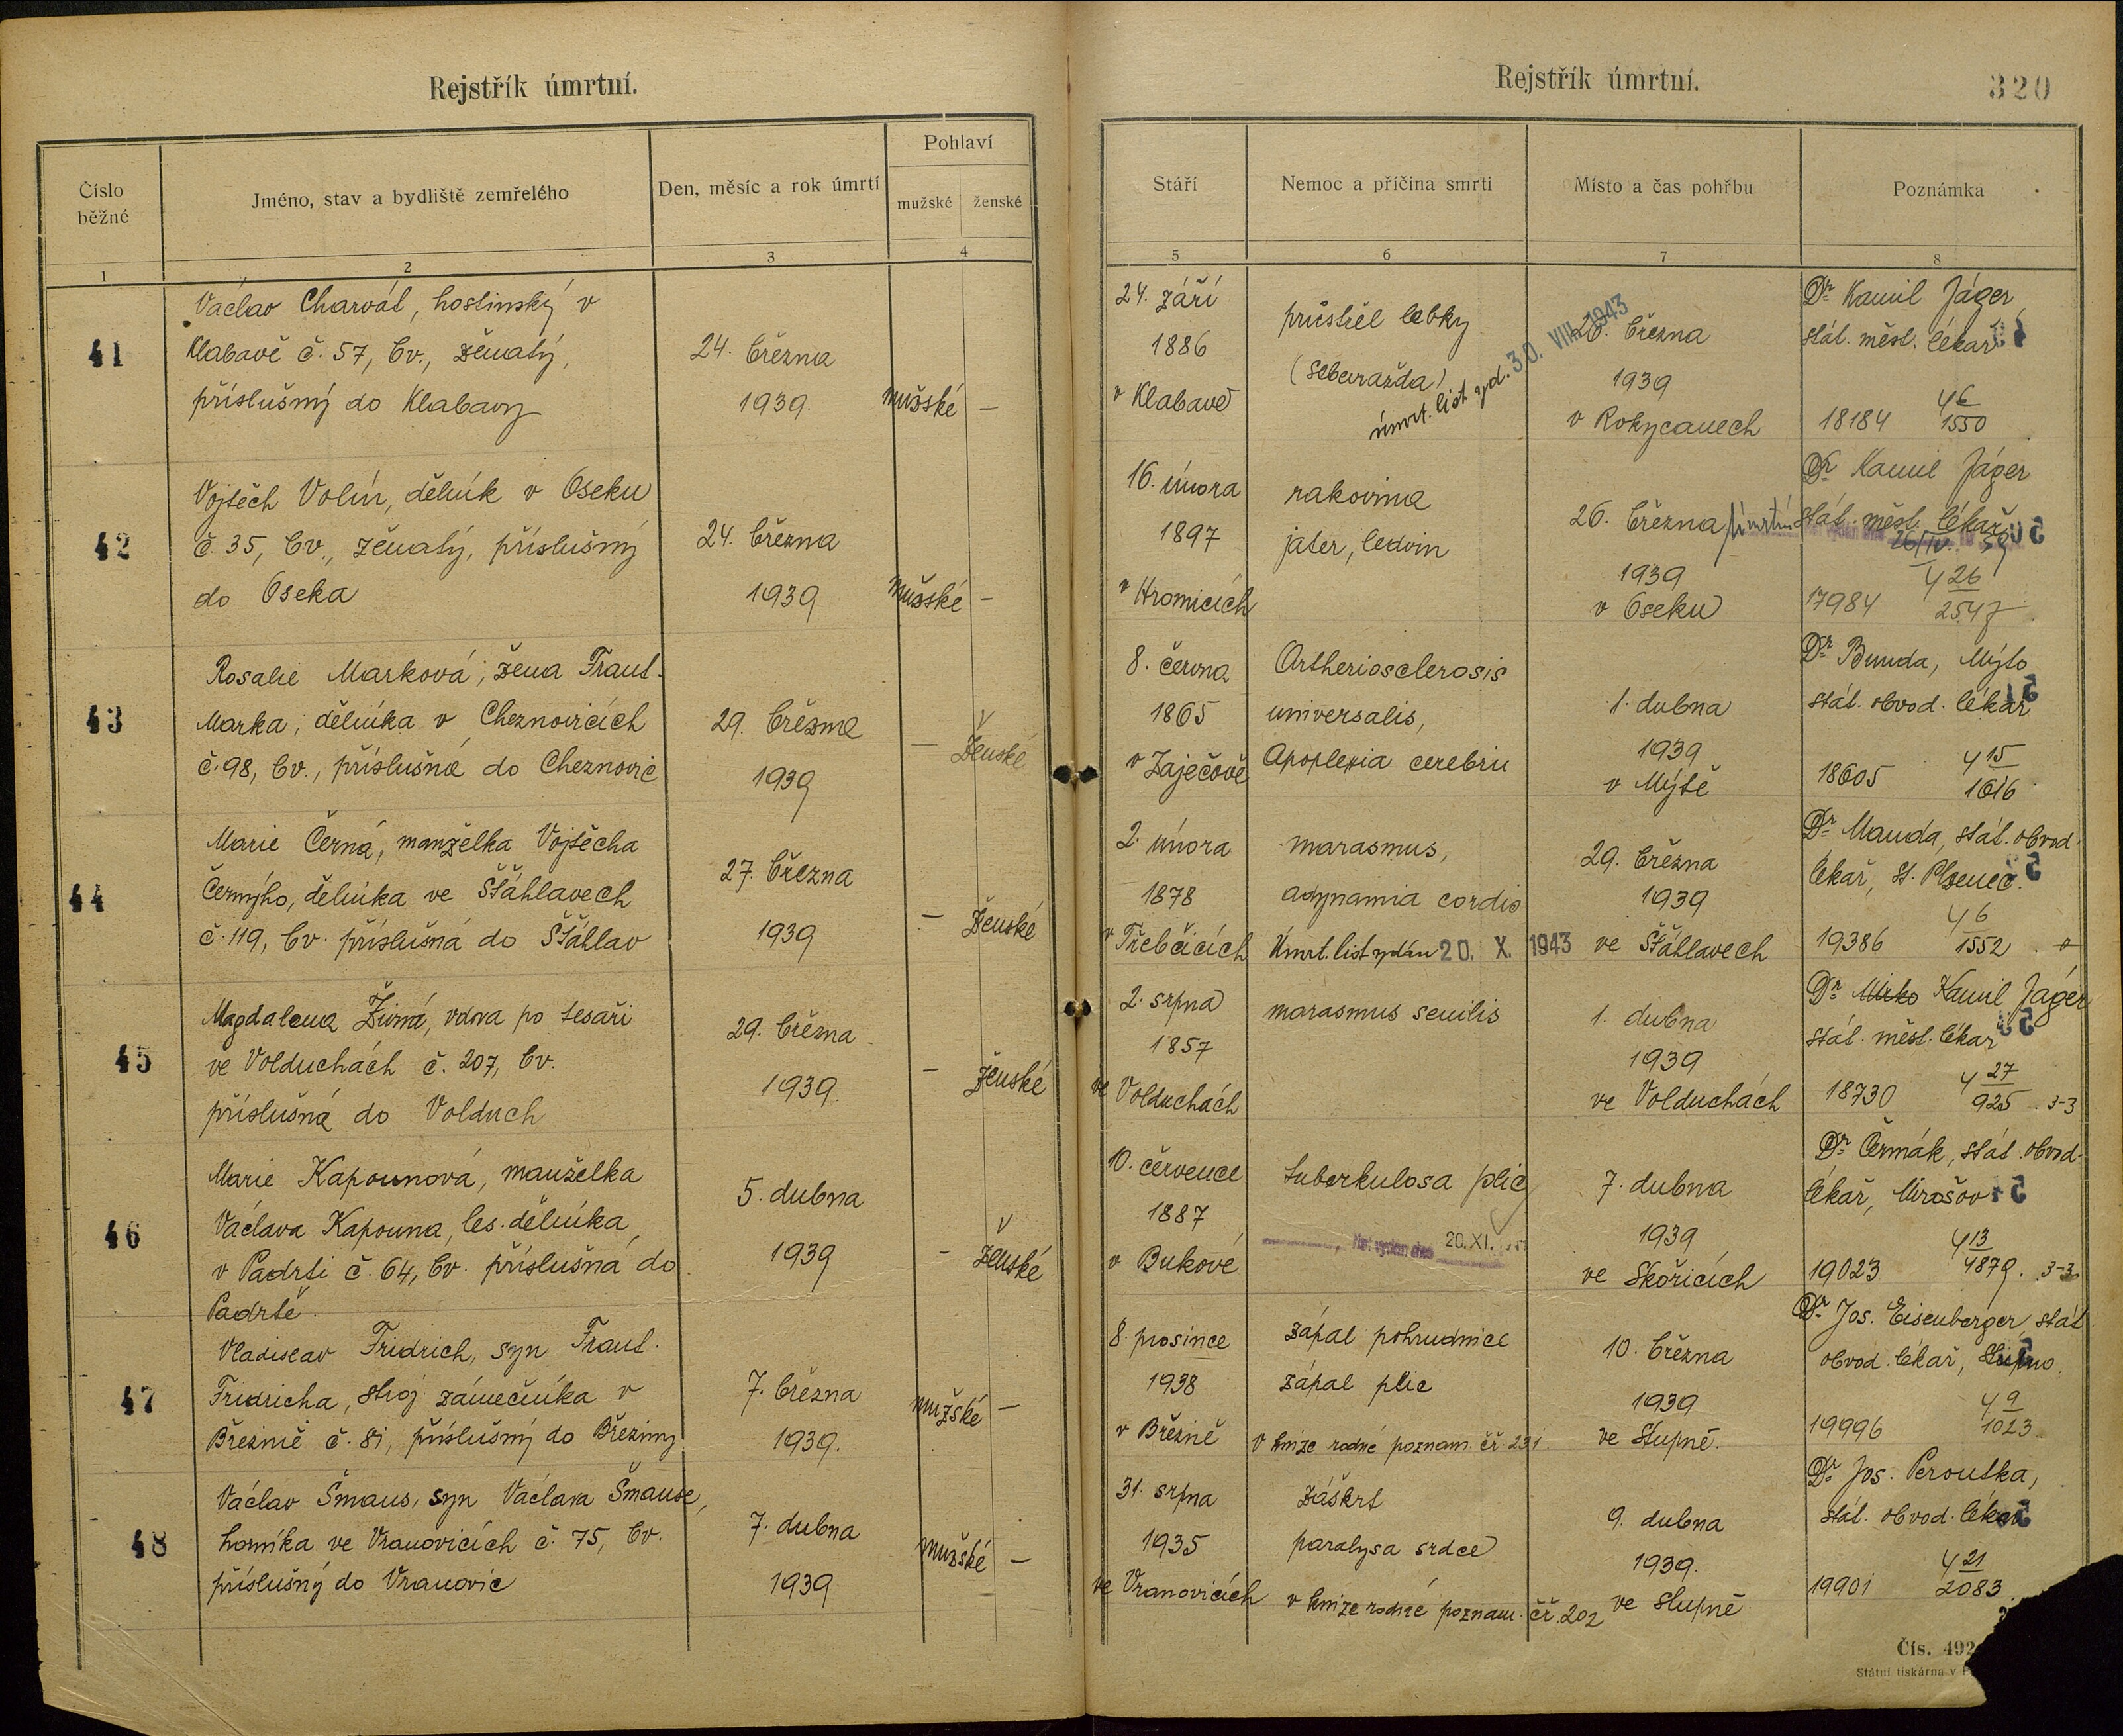 Rejstřík úmrtní.
Číslo běžné
Jméno, stav a bydliště zemřelého
Den, měsíc a rok úmrtí
Pohlaví
mužské
ženské
1
2
3
4
Rejstřík úmrtní.
320
Stáří
Nemoc a příčina smrti
Místo a čas pohřbu
Poznámka
5
6
7
8
41
Václav Charvát, hostinský v
Klabavě č. 57, čv., ženatý,
příslušný do Klabavy
24. března
1939.
mužské —
24. září
1886
v Klabavě
průstřel lebky
(sebevražda)
úmrt. list vyd. 30. VIII. 1943
26. března
1939
v Rokycanech
Dr Kamil Jäger
stát. měst. lékař
18184
46
1550
42
Vojtěch Volín, dělník v Oseku
č. 35, čv., ženatý, příslušný
do Oseka
24. března
1939
mužské —
16. února
1897
v Hromicích
rakovina
jater, ledvin
26. března
1939
v Oseku
Dr Kamil Jäger
stát. měst. lékař
26/IV. 39
17984
426
2547
43
Rosalie Marková, žena Frant.
Marka, dělníka v Cheznovicích
č. 98, čv., příslušná do Cheznovic
29. března
1939
— ženské
8. června
1865
v Zaječově
Artheriosclerosis
universalis,
Apoplexia cerebri
1. dubna
1939
v Mýtě
Dr Bunda, Mýto
stát. obvod. lékař
18605
415
1616
44
Marie Černá, manželka Vojtěcha
Černýho, dělníka ve Šťáhlavech
č. 119, čv. příslušná do Šťáhlav
27. března
1939
— ženské
2. února
1878
v Třebčicích
marasmus,
adynamia cordis
Úmrt. list vydán 20. X. 1943
29. března
1939
ve Šťáhlavech
Dr Manda, stát. obvod.
lékař, St. Plzenec.
19386
46
1552
45
Magdalena Živná, vdova po tesaři
ve Volduchách č. 207, čv.
příslušná do Volduch
29. března
1939.
— ženské
2. srpna
1857
ve Volduchách
marasmus senilis
1. dubna
1939
ve Volduchách
Dr Mirko Kamil Jäger
stát. měst. lékař
18730
427
925 3-3
46
Marie Kapounová, manželka
Václava Kapouna, les. dělníka,
v Padrti č. 64, čv. příslušná do
Padrtě.
5. dubna
1939
— ženské
10. července
1887
v Bukové
tuberkulosa plic
list vydán dne 20. XI.
7. dubna
1939
ve Skořicích
Dr Čermák, stát. obvod.
lékař, Mirošov
19023
413
4879. 3-3
47
Vladislav Fridrich, syn Frant.
Fridricha, stroj. zámečníka v
Březině č. 81, příslušný do Březiny
7. března
1939.
mužské —
8. prosince
1938
v Březině
zápal pohrudnice
zápal plic
v knize rodné poznam. čř. 231.
10. března
1939
ve Stupně.
Dr Jos. Eisenberger, stát
obvod. lékař, Stupno.
19996
49
1023
48
Václav Šmaus, syn Václava Šmause,
horníka ve Vranovicích č. 75, čv.
příslušný do Vranovic
7. dubna
1939
mužské —
31. srpna
1935
ve Vranovicích
záškrt
paralysa srdce
v knize rodné poznam. čř. 202
9. dubna
1939.
ve Stupně
Dr Jos. Peroutka,
stát. obvod. lékař
19901
421
2083
Čís. 492
Státní tiskárna v